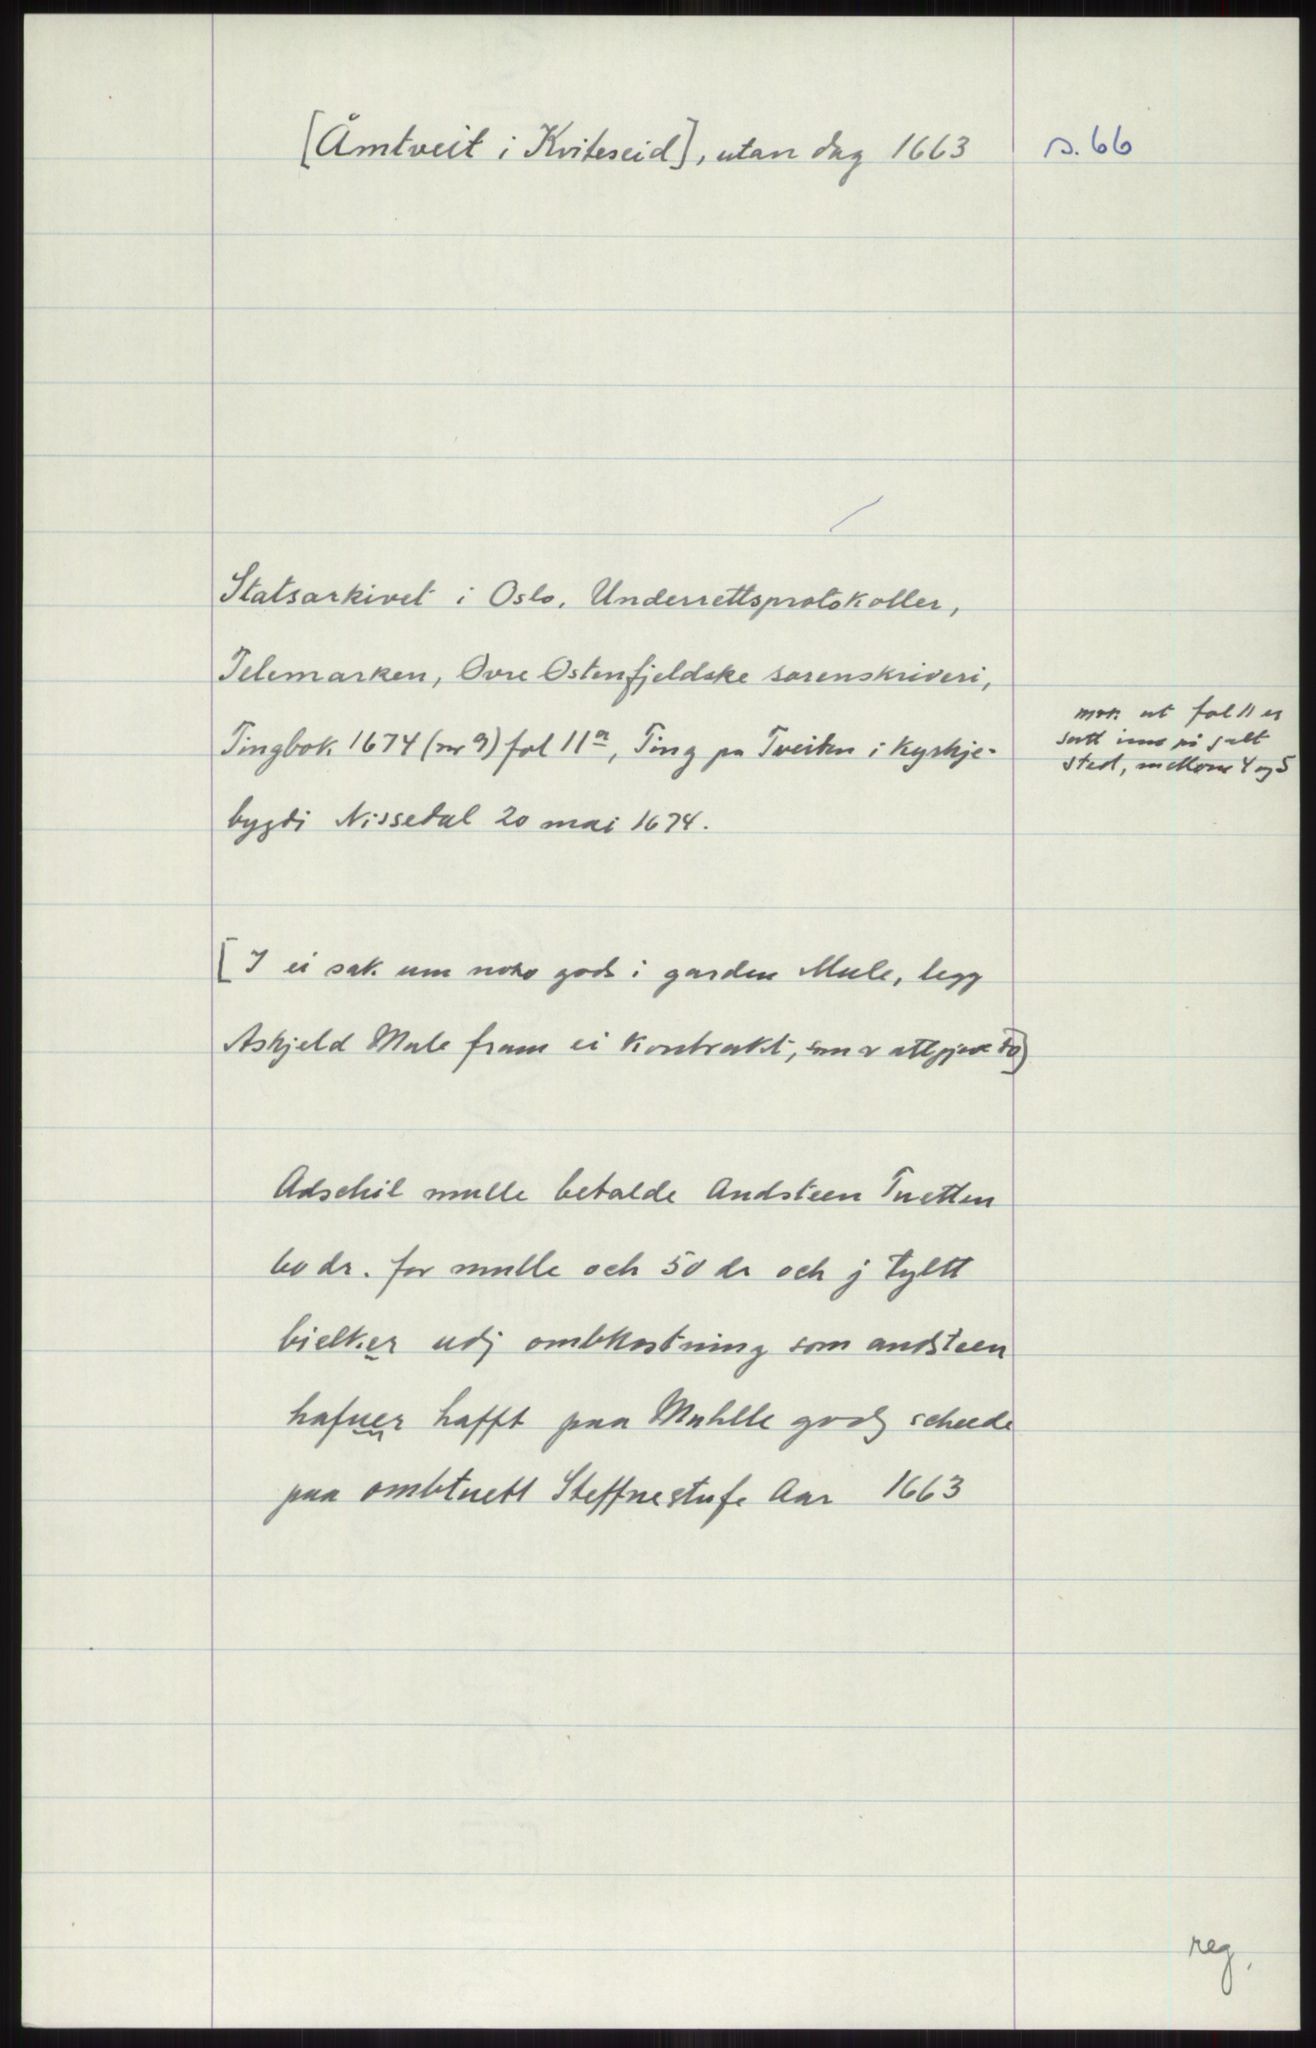 [Åmtveit i Kviteseid], utan dag 1663
s. 66
Statsarkivet i Oslo. Underrettsprotokoller,
Telemarken, Øvre Østenfjeldske sorenskriveri,
Tingbok 1674 (nr 9) fol 11a, Ting på Tveiten i Kyrkje-
bygdi Nissedal 20 mai 1674.
mrk. at fol 11 er
sett inn på galt
sted, mellom 4 og 5
[I ei sak um noko gods i garden Mule, legg
Askjeld Mule fram ei kontrakt, som
Adschil mulle betalde Andsteen Tuetten
60 dr. for mulle och 50 dr och j tyltt
bielker udj ombkostning som andsteen
hafuer hafft paa Muhlle godz scheede
paa ombtuett Steffnestufe Aar 1663
reg.